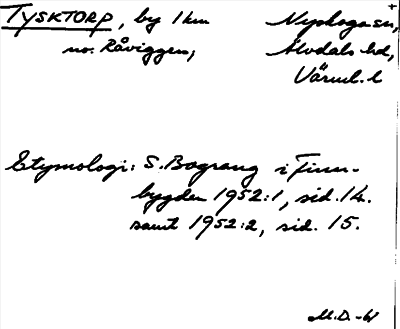 TYSKTORP, by 1 km Nyskoga sn,
no. Råviggen, Älvdals hd,
Värml. l
Etymologi: S. Bograng i Finn-
bygden 1952:1, sid. 14.
samt 1952:2, sid. 15.
M.D.-61